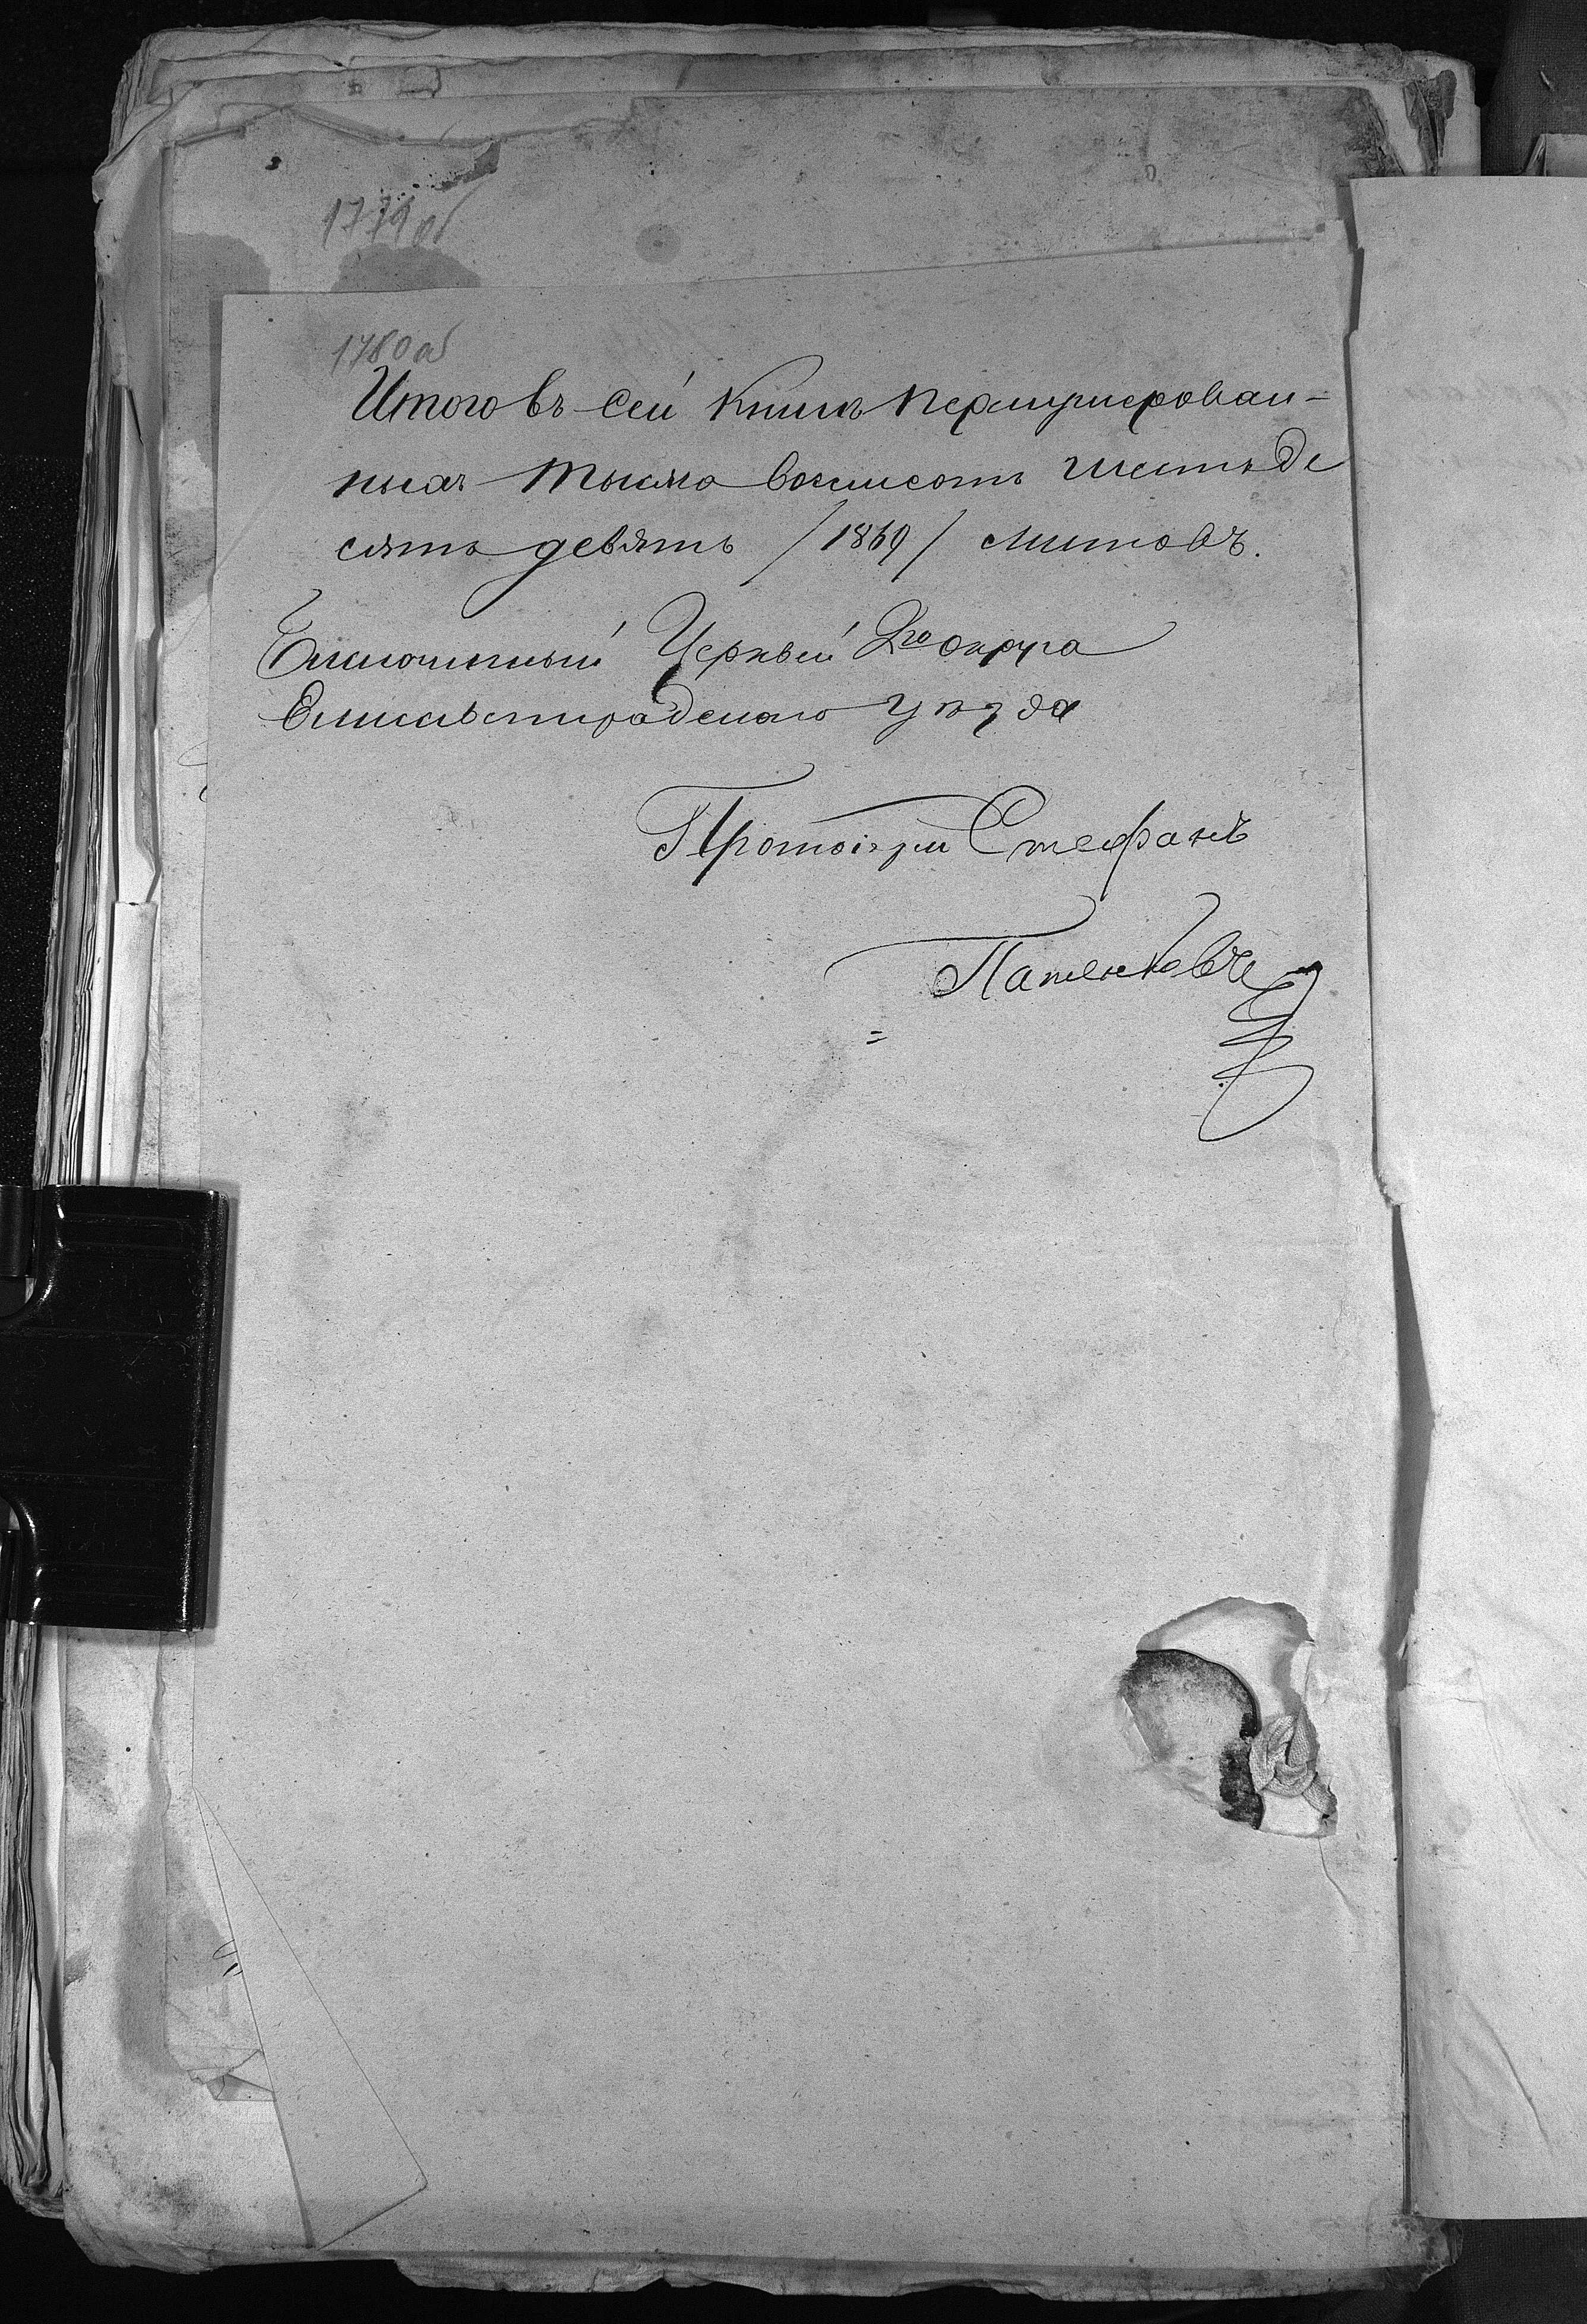 1779 об
1780 об
Итого въ сей книгѣ перенумерован-
ныхъ тысяча восемьсотъ шестьде
сятъ девять /1869/ листовъ.
Благочинный Церквей 2го округа
Елисаветградскаго уѣзда
Протоіерей Стефанъ